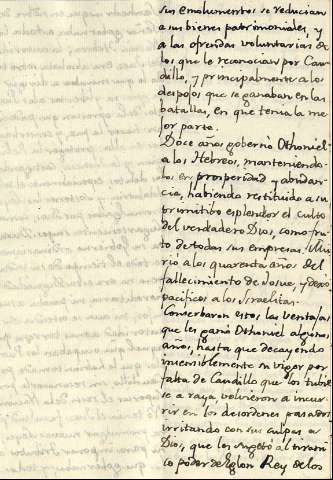 sus emolumentos se reducian
a sus bienes patrimoniales, y
a las ofrendas voluntarias de
los que le reconocian por Cau-
dillo, y principalmente a los
despojos que se ganaban en las
batallas, en que tenia la me-
jor parte.
Doce años gobernó Othoniel
a los Hebreos, manteniendo-
los en prosperidad y abundan-
cia, habiendo restituido a su
primitibo esplendor el culto
del verdadero Dios, como fru-
to de todas sus empresas. Mu-
rió a los quarenta años del
fallecimiento de Josue, y dexó
pacificos a los Israelitas.
Conserbaron estos las ventajas
que les ganó Othoniel algunos
años, hasta que decayendo
insensiblemente su vigor por
falta de Caudillo que los tubie-
se a raya, volvieron a incur-
rir en los desordenes pasados
irritando con sus culpas a
Dios, que los sugetó al tirani-
co poder de Eglon Rey de los